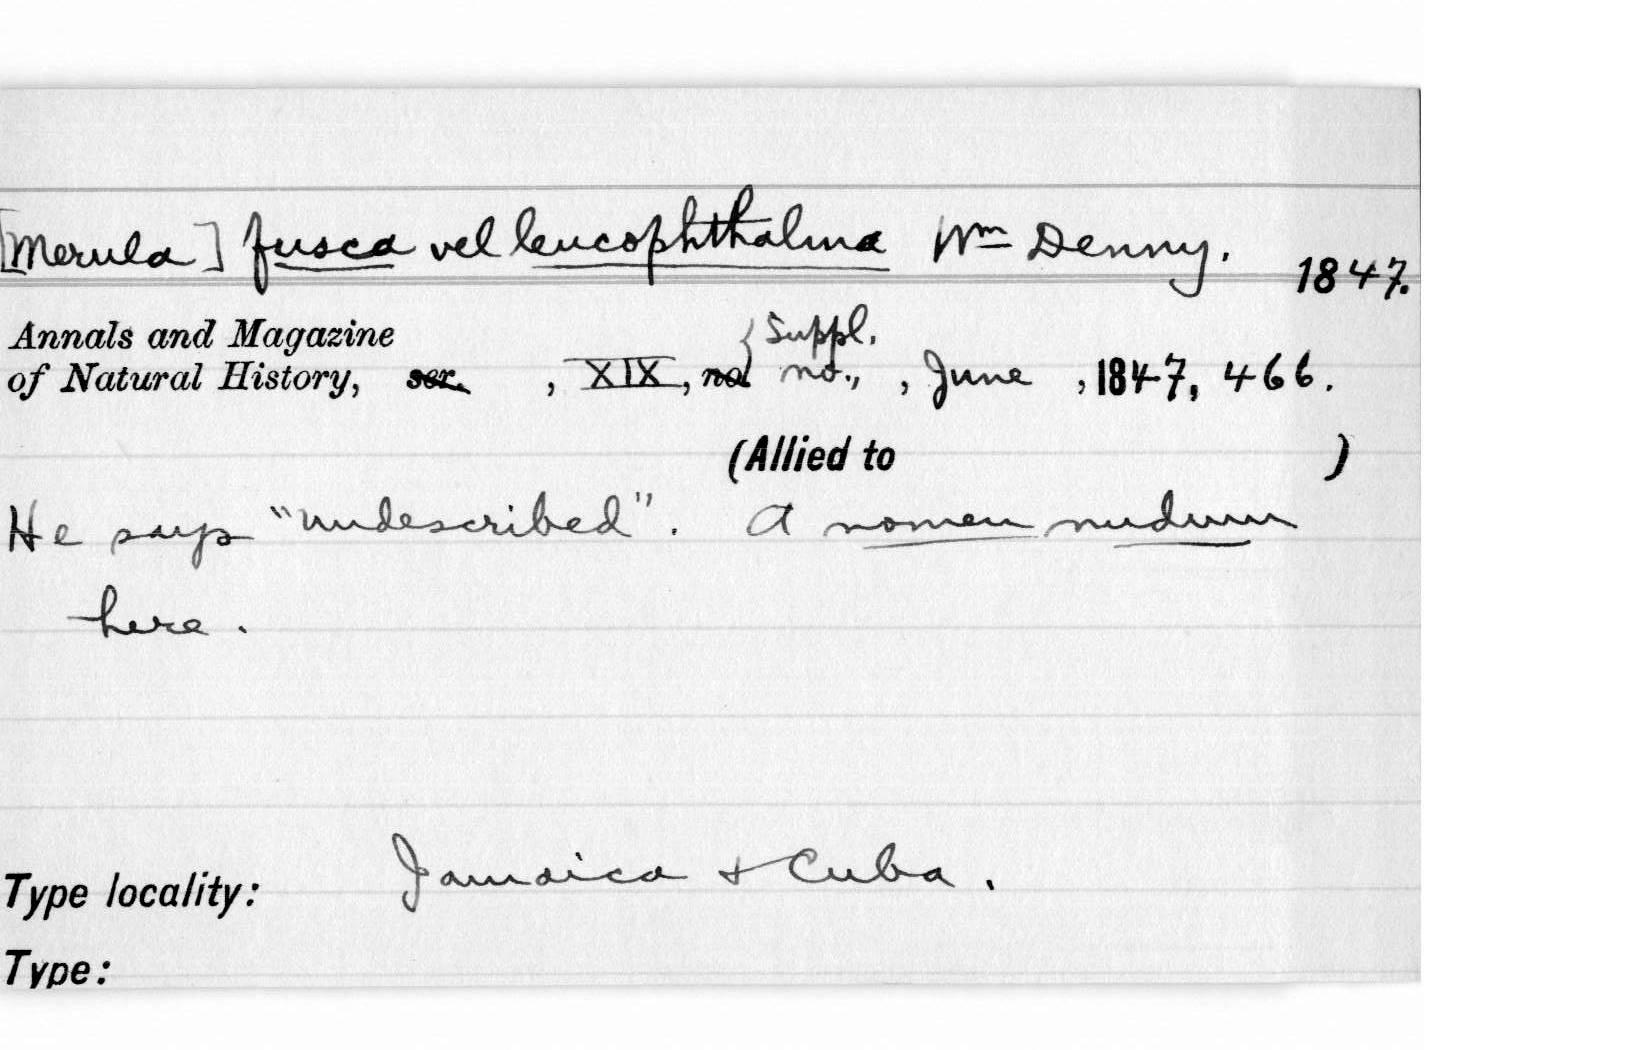 [Merula] fusca vel leucophthalma Wm Denny. 1847.
{Suppl.
Annals and Magazine
of Natural History, ser. , XIX, no. no., , June , 1847, 466.
(Allied to )
He says "undescribed". A nomen nudum
here.
Type locality: Jamaica & Cuba.
Type: